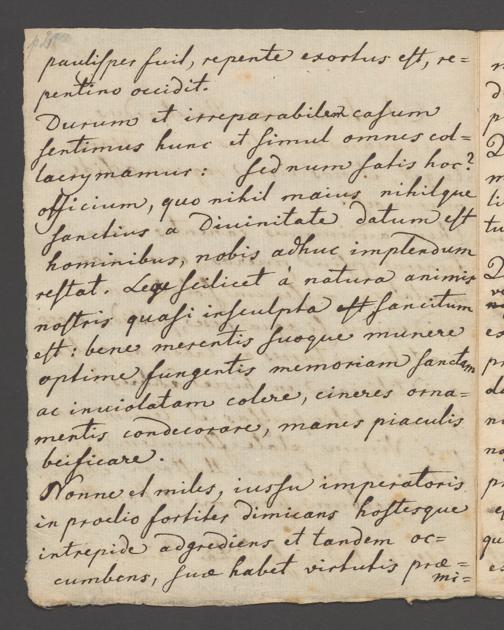 paulisper fuit, repente exortus est, re=
pentino occidit.
Durum et irreparabilem casum
sentimus hunc et simul omnes col=
lacrymamur: sed num satis hoc?
officium, quo nihil maius nihilque
sanctius a Divinitate datum est
hominibus, nobis adhuc implendum
restat. Lege scilicet à natura animis
nostris quasi insculpta est sancitum
est: bene merentis suoque munere
optime fungentis memoriam sanctam
ac inviolatam colere, cineres orna=
mentis condecorare, manes piaculis
beificare.
Nonne et miles, iussu imperatoris
in proelio fortiter dimicans hostesque
intrepide adgrediens et tandem oc=
cumbens, suæ habet virtutis præ=
mi=